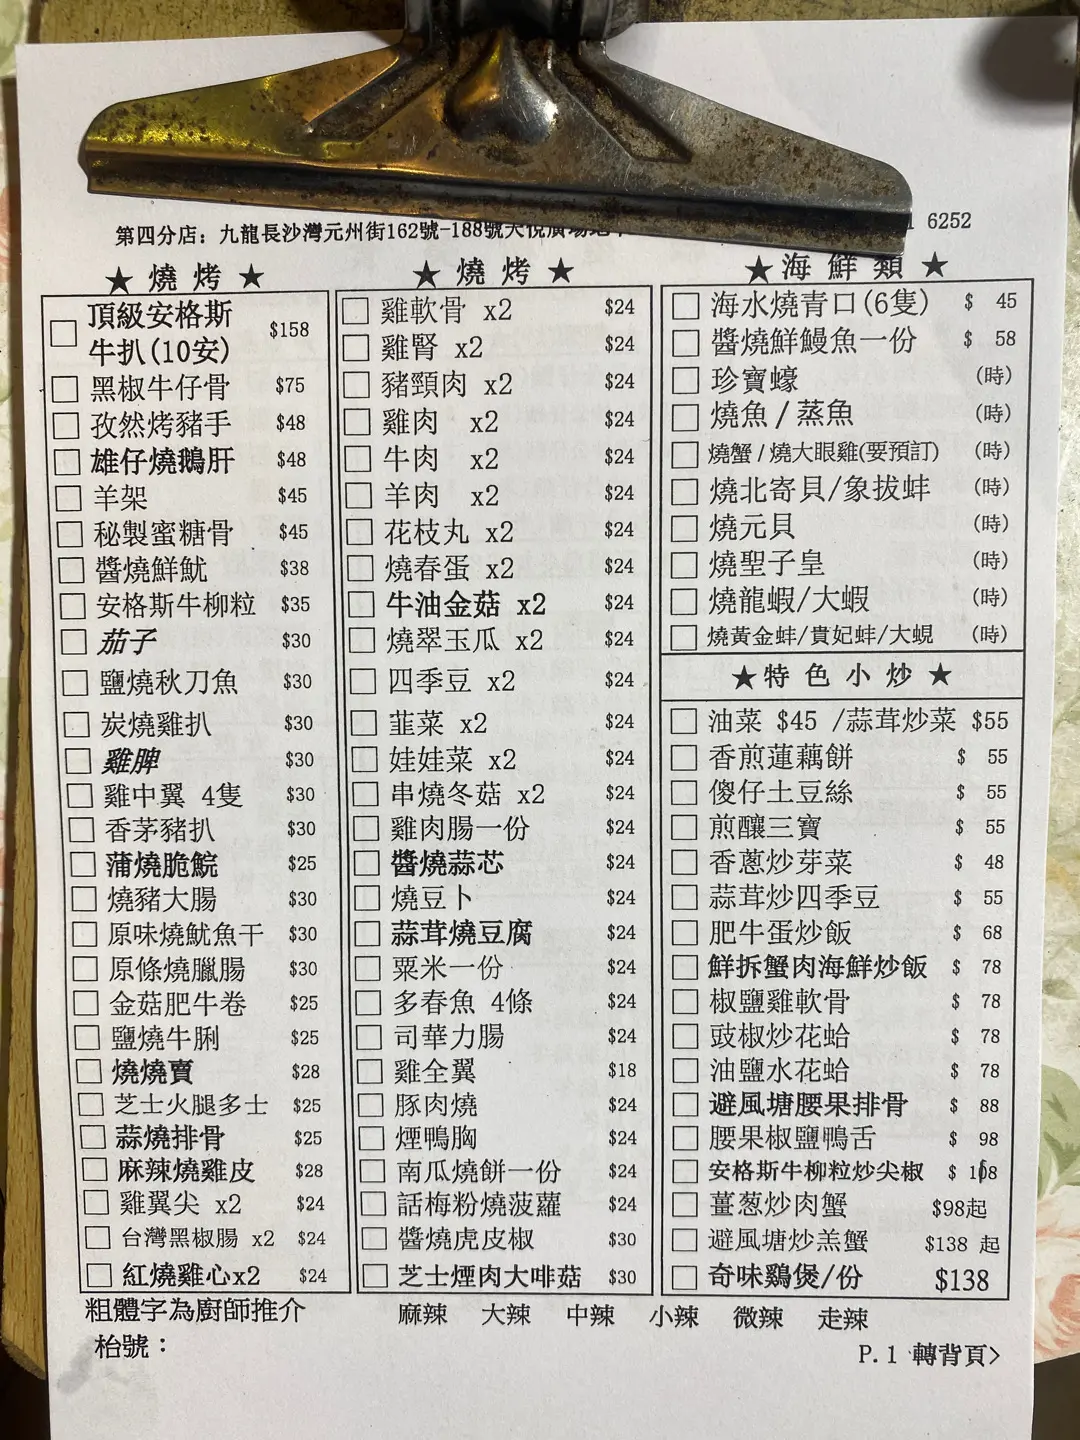 第四分店：九龍長沙灣元州街162號-188號天悅廣場
6252
★ 燒 烤 ★
頂級安格斯
牛扒(10安) $158
黑椒牛仔骨 $75
孜然烤豬手 $48
雄仔燒鵝肝 $48
羊架 $45
秘製蜜糖骨 $45
醬燒鮮魷 $38
安格斯牛柳粒 $35
茄子 $30
鹽燒秋刀魚 $30
炭燒雞扒 $30
雞脾 $30
雞中翼 4隻 $30
香茅豬扒 $30
蒲燒脆鯇 $25
燒豬大腸 $30
原味燒魷魚干 $30
原條燒臘腸 $30
金菇肥牛卷 $25
鹽燒牛脷 $25
燒燒賣 $28
芝士火腿多士 $25
蒜燒排骨 $25
麻辣燒雞皮 $28
雞翼尖 x2 $24
台灣黑椒腸 x2 $24
紅燒雞心x2 $24
★ 燒 烤 ★
雞軟骨 x2 $24
雞腎 x2 $24
豬頸肉 x2 $24
雞肉 x2 $24
牛肉 x2 $24
羊肉 x2 $24
花枝丸 x2 $24
燒春蛋 x2 $24
牛油金菇 x2 $24
燒翠玉瓜 x2 $24
四季豆 x2 $24
韮菜 x2 $24
娃娃菜 x2 $24
串燒冬菇 x2 $24
雞肉腸一份 $24
醬燒蒜芯 $24
燒豆卜 $24
蒜茸燒豆腐 $24
粟米一份 $24
多春魚 4條 $24
司華力腸 $24
雞全翼 $18
豚肉燒 $24
煙鴨胸 $24
南瓜燒餅一份 $24
話梅粉燒菠蘿 $24
醬燒虎皮椒 $30
芝士煙肉大啡菇 $30
★ 海 鮮 類 ★
海水燒青口(6隻) $ 45
醬燒鮮鰻魚一份 $ 58
珍寶蠔 (時)
燒魚 / 蒸魚 (時)
燒蟹 / 燒大眼雞(要預訂) (時)
燒北寄貝/象拔蚌 (時)
燒元貝 (時)
燒聖子皇 (時)
燒龍蝦/大蝦 (時)
燒黃金蚌/貴妃蚌/大蜆 (時)
★ 特 色 小 炒 ★
油菜 $45 /蒜茸炒菜 $55
香煎蓮藕餅 $ 55
傻仔土豆絲 $ 55
煎釀三寶 $ 55
香蔥炒芽菜 $ 48
蒜茸炒四季豆 $ 55
肥牛蛋炒飯 $ 68
鮮拆蟹肉海鮮炒飯 $ 78
椒鹽雞軟骨 $ 78
豉椒炒花蛤 $ 78
油鹽水花蛤 $ 78
避風塘腰果排骨 $ 88
腰果椒鹽鴨舌 $ 98
安格斯牛柳粒炒尖椒 $ 108
薑葱炒肉蟹 $98起
避風塘炒羔蟹 $138 起
奇味鷄煲/份 $138
粗體字為廚師推介
麻辣 大辣 中辣 小辣 微辣 走辣
枱號：
P.1 轉背頁>